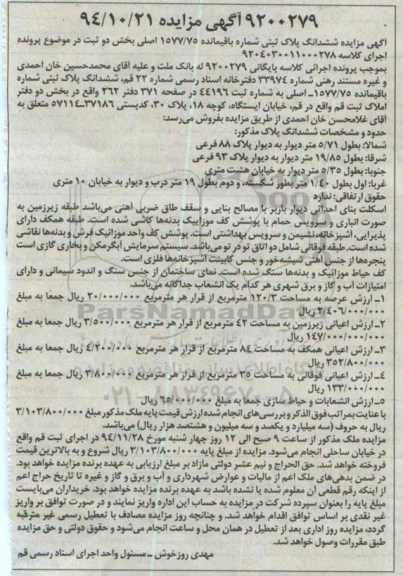 ۹۲۰۰۲۷۹ آگهی مزایده ۹۴/۱۰/۲۱
آگهی مزایده ششدانگ پلاک ثبتی شماره باقیمانده ۱۵۷۷/۷۵ اصلی بخش دو ثبت در موضوع پرونده
اجرای کلاسه ۹۲۰۴۰۳۰۰۱۱۰۰۰۲۷۸
بموجب پرونده اجرائی کلاسه بایگانی ۹۲۰۰۲۷۹ له بانک ملت و علیه آقای محمدحسین خان احمدی
و غیره مستند رهنی شماره ۳۳۹۷۴ دفترخانه اسناد رسمی شماره ۲۲ قم، ششدانگ پلاک ثبتی شماره
باقیمانده ۱۵۷۷/۷۵ـ اصلی به شماره ثبت ۴۴۱۹۶ در صفحه ۳۷۱ دفتر ۲۶۲ واقع در بخش دو دفتر
املاک ثبت قم واقع در قم، خیابان ایستگاه، کوچه ۱۸، پلاک ۳۰، کدپستی ۳۷۱۸۶ـ۵۷۱۱۴ متعلق به
آقای غلامحسن خان احمدی از طریق مزایده بفروش می‌رسد:
حدود و مشخصات ششدانگ پلاک مذکور:
شمالا: بطول ۵/۷۱ متر دیوار به دیوار پلاک ۸۸ فرعی
شرقا: بطول ۱۹/۸۵ متر دیوار به دیوار پلاک ۹۳ فرعی
جنوبا: بطول ۵/۳۵ متر دیوار به خیابان هشت متری
غربا: اول بطول ۱/۴۰ متر بطور شکسته، و دوم بطول ۱۹ متر درب و دیوار به خیابان ۱۰ متری
حقوق ارتفاقی: ندارد
اسکلت بنای احداثی دیوار باربر با مصالح بنایی و سقف طاق ضربی آهنی می‌باشد طبقه زیرزمین به
صورت انباری و سرویس حمام با پوشش کف موزاییک بدنه‌ها کاشی شده است. طبقه همکف دارای
پذیرایی، آشپزخانه، نشیمن و سرویس بهداشتی است. پوشش کف واحد موزائیک فرش و بدنه‌ها نقاشی
شده است. طبقه فوقانی شامل دو اتاق تو در تو می‌باشد. سیستم سرمایش آبگرمکن و بخاری گازی است
پنجره‌ها از جنس آهنی شیشه‌خور و جنس کابینت آشپزخانه‌ها فلزی است.
کف حیاط موزائیک و بدنه‌ها سنگ شده است. نمای ساختمان از جنس سنگ و اندود سیمانی و دارای
امتیازات آب و گاز و برق شهری هر کدام یک انشعاب جداگانه می‌باشد.
۱ـ ارزش عرصه به مساحت ۱۲۰/۳ مترمربع از قرار هر مترمربع ۲۰/۰۰۰/۰۰۰ ریال جمعا به مبلغ
۲/۴۰۶/۰۰۰/۰۰۰ ریال
۲ـ ارزش اعیانی زیرزمین به مساحت ۴۲ مترمربع از قرار هر مترمربع ۳/۵۰۰/۰۰۰ ریال جمعا به
مبلغ ۱۴۷/۰۰۰/۰۰۰ ریال
۳ـ ارزش اعیانی همکف به مساحت ۸۴ مترمربع از قرار هر مترمربع ۴/۲۰۰/۰۰۰ ریال جمعا به مبلغ
۳۵۲/۸۰۰/۰۰۰ ریال
۴ـ ارزش اعیانی فوقانی به مساحت ۳۵ مترمربع از قرار هر مترمربع ۳/۸۰۰/۰۰۰ ریال جمعا به مبلغ
۱۳۳/۰۰۰/۰۰۰ ریال
۵ـ ارزش انشعابات و حیاط سازی جمعا به مبلغ ۶۵/۰۰۰/۰۰۰ ریال
با عنایت بمراتب فوق الذکر و بررسی‌های انجام شده ارزش قیمت پایه ملک مذکور مبلغ ۳/۱۰۳/۸۰۰/۰۰۰
ریال به حروف (سه میلیارد و یکصد و سه میلیون و هشتصد هزار ریال) می‌باشد.
مزایده ملک مذکور از ساعت ۹ صبح الی ۱۲ روز چهار شنبه مورخ ۹۴/۱۱/۲۸ در اجرای ثبت قم واقع
در خیابان ساحلی انجام می‌شود. مزایده از مبلغ پایه ۳/۱۰۳/۸۰۰/۰۰۰ ریال شروع و به بالاترین قیمت
فروخته خواهد شد. حق الحراج و نیم عشر دولتی مازاد بر مبلغ ارزیابی به عهده برنده مزایده خواهد بود.
در ضمن بدهی‌های ملک اعم از مالیات و عوارض شهرداری و آب و برق و گاز و غیره تا تاریخ حراج اعم
از اینکه رقم قطعی آن معلوم شده یا نشده باشد به عهده برنده مزایده خواهد بود. خریداران می‌بایست
مبلغ پایه را بعنوان سپرده شرکت در مزایده به حساب این اداره واریز نمایند و در صورت توافق بر واریز
غیر نقدی بر اساس توافق اقدام خواهد شد. و چنانچه روز مزایده مصادف با تعطیل رسمی غیر مترقبه
گردد، مزایده روز اداری بعد از تعطیل در همان محل و ساعت انجام می‌شود و حقوق دولتی و حق مزایده
طبق مقررات وصول خواهد شد.
مهدی روزخوش ـ مسئول واحد اجرای اسناد رسمی قم
ParsNamadData
۰۲۱-۸۸۳۴۹۶۷۰